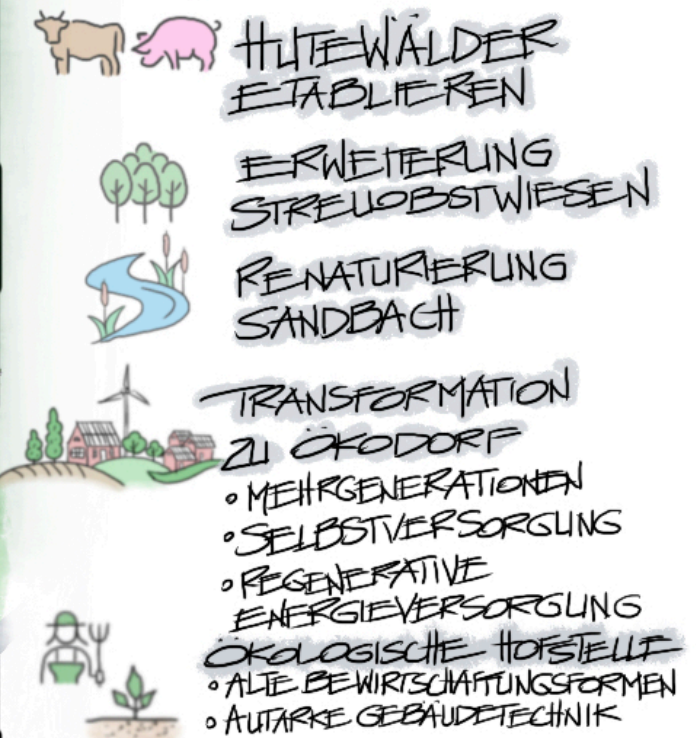 HUTEWÄLDER
ETABLIEREN
ERWEITERUNG
STREUOBSTWIESEN
RENATURIERUNG
SANDBACH
TRANSFORMATION
ZU ÖKODORF
• MEHRGENERATIONEN
• SELBSTVERSORGUNG
• REGENERATIVE
ENERGIEVERSORGUNG
ÖKOLOGISCHE HOFSTELLE
• ALTE BEWIRTSCHAFTUNGSFORMEN
• AUTARKE GEBÄUDETECHNIK